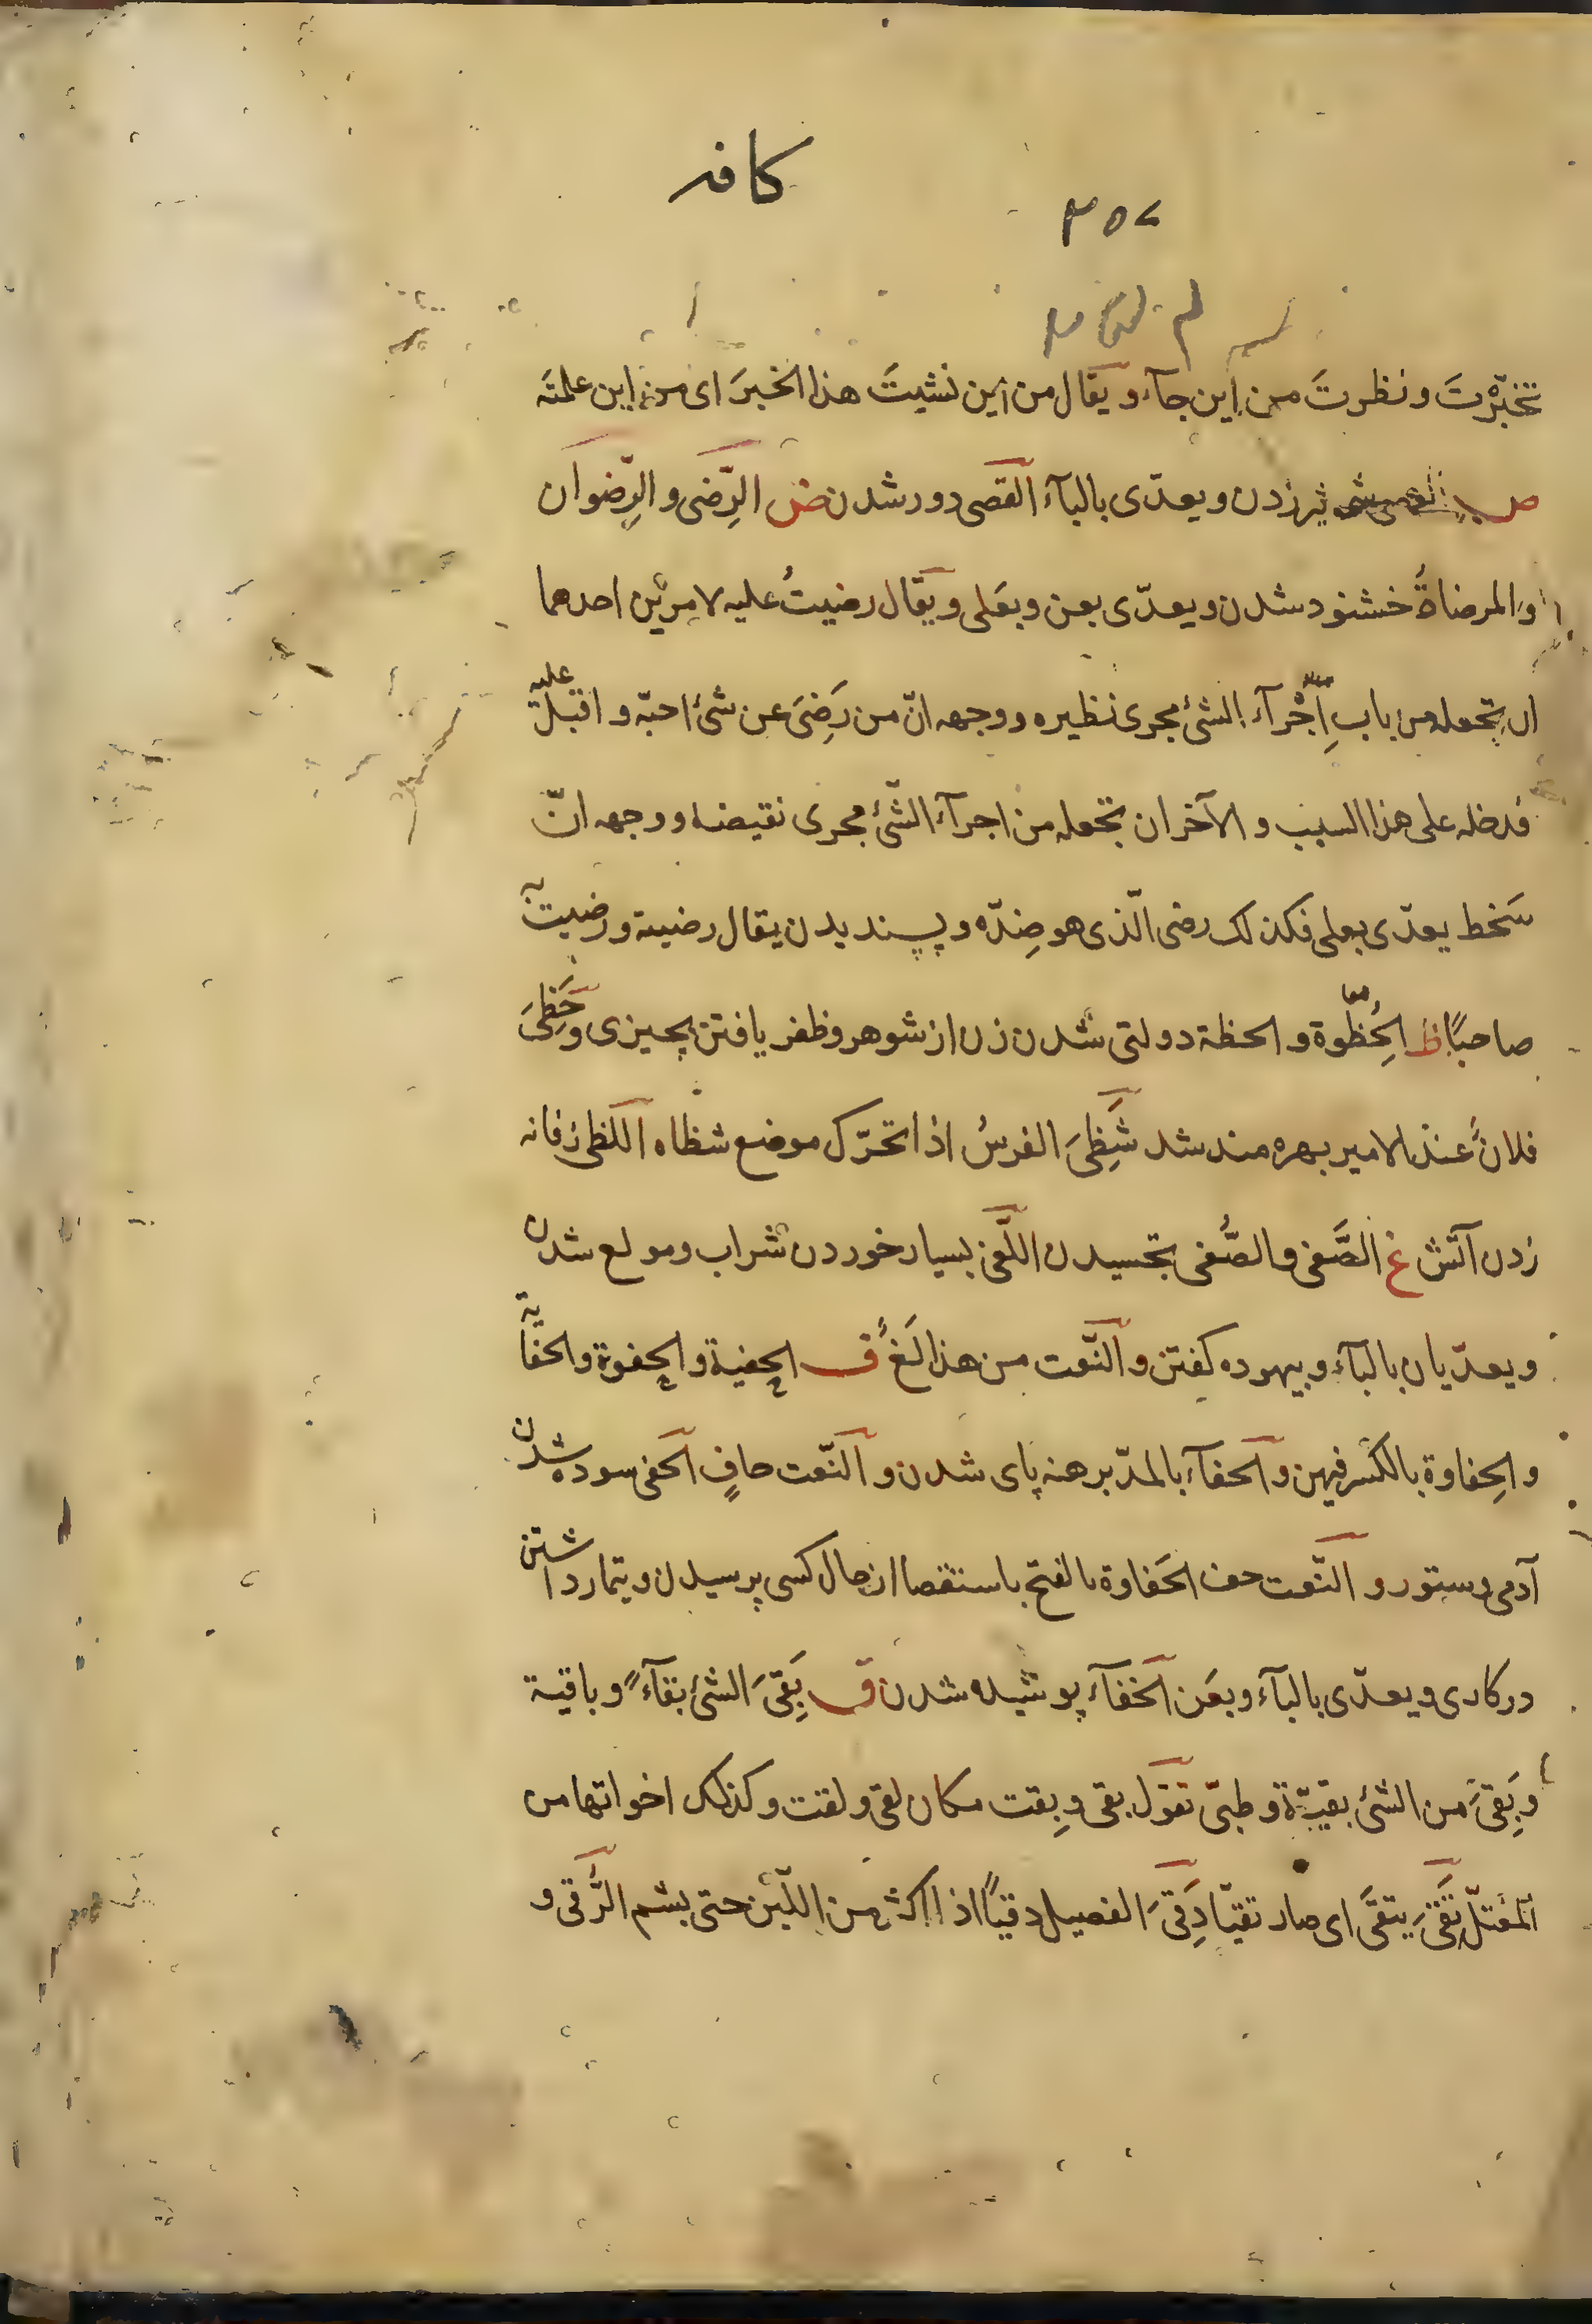 كافه
تخبّرتَ ونظرتَ من اين جآء ويقال من اين نشيتَ هذا الخبرَ اى من اين علمتَه
ص شمشير زدن ويعدّى بالبآء القصى دور شدن ض الرِّضى والرِّضوان
والمرضاةُ خشنود شدن ويعدّى بعن وبعلى ويقال رضيتُ عليه لامرين احدهما
ان تجعله من بابِ اجرآء الشئ مجرى نظيره ووجهه انّ من رَضِىَ عن شئ احبّه واقبل عليه
فدخله على هذا السبب والآخر ان تجعله من اجرآء الشّئ مجرى نقيضه ووجهه انّ
سَخط يعدّى بعلى فكذلك رضى الّذى هو ضِدّه وپسنديدن يقال رضيته ورضيت به
صاحبًا ظ الحُِظوة والحظة دولتى شدن زن از شوهر وظفر يافتن بچيزى وحَظِىَ
فلانٌ عند الامير بهره مند شد شَظِىَ الفرسُ اذا تحرّك موضع شظاه اللظى زفانه
زدن آتش غ الصَّغى والصُّغى بچسيدن اللّغى بسيار خوردن شراب ومولع شدن
ويعدّيان بالبآء وبيهوده كفتن والنّعت من هذا لَغٍ ف الحِفية والحِفوة والحفاية
والحِفاوة بالكسر فيهن والحفآء بالمدّ برهنه پاى شدن والنّعت حافٍ الحَفى سوده شدن
آدمى وستور والنّعت حف الحَفاوة بالفتح باستقصا از حال كسى پرسيدن وتيمار داشتن
در كارى ويعدّى بالبآء وبعن الخفآء پوشيده شدن ق بَقِىَ الشئ بقآءً وباقية
وبَقِىَ من الشئ بقيّة وطيّ تقول بقى وبقت مكان لقى ولقت وكذلك اخواتها من
المعتلّ تَقِىَ يتقَى اى صار تقيّا دَقِىَ الفصيل دقيًا اذا اكثر من اللّبن حتى بشم الرُّقى و